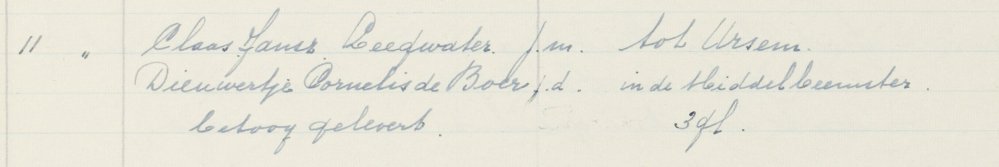 11 " Claas Jansz. Leegwater. j.m. tot Ursem.
Dieuwertje Cornelis de Boer j.d. in de Middelbeemster.
betoog gelevert. 3 gl.